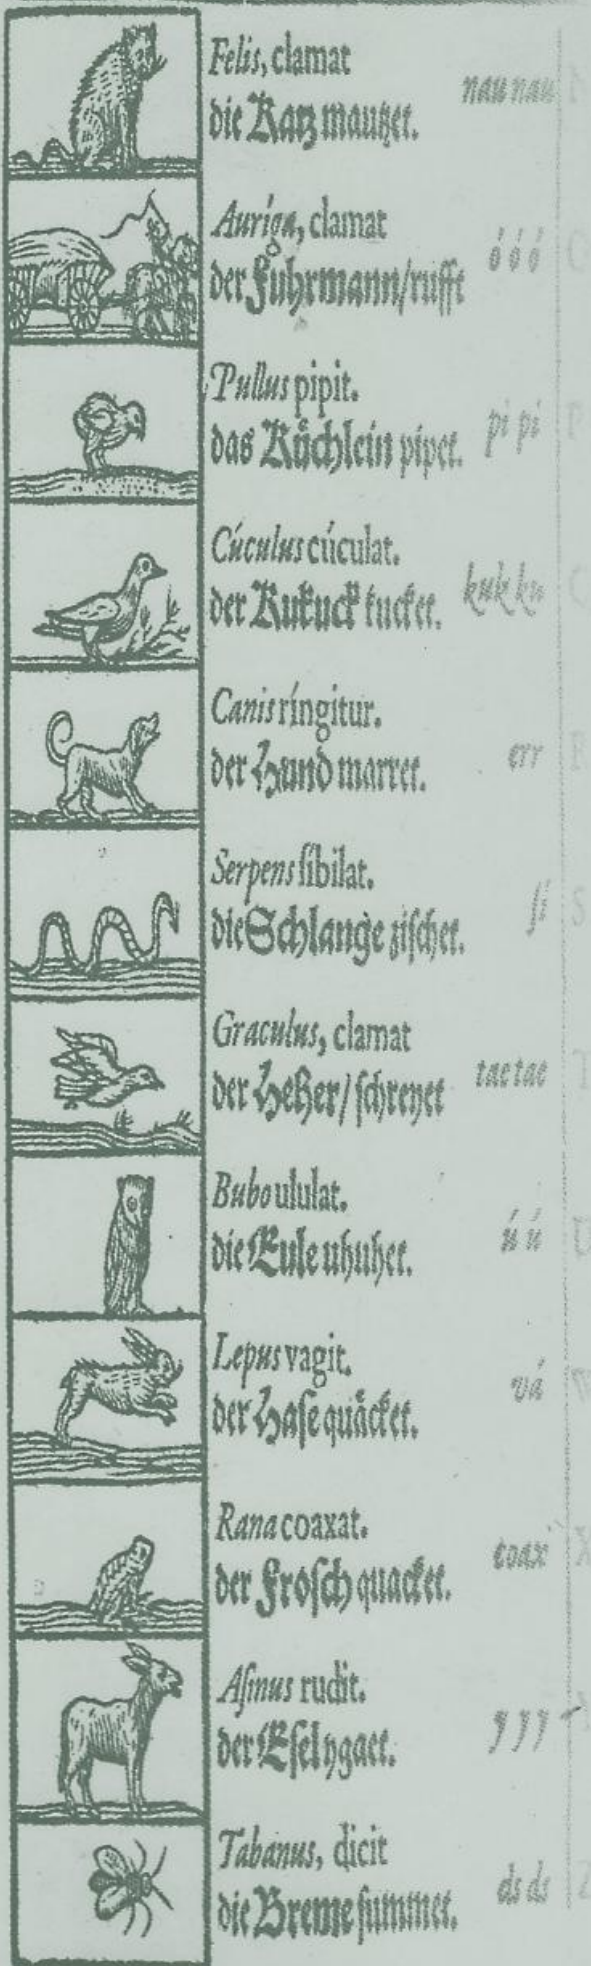 Felis, clamat
die Katz mautzet.
nau nau
Auriga, clamat
der Fuhrmann/rufft
ó ó ó
Pullus pipit.
das Küchlein pipet.
pi pi
Cúculus cúculat.
der Kukuck kucket.
kuk ku
Canis ríngitur.
der Hund marret.
err
Serpens sibilat.
die Schlange zischet.
si
Graculus, clamat
der Heher/ schreyet
tae tae
Bubo ululat.
die Eule uhuhet.
ú ú
Lepus vagit.
der Hase quäcket.
vá
Rana coaxat.
der Frosch quacket.
coax
Asinus rudit.
der Esel ygaet.
y y y
Tabanus, dicit
die Breme summet.
ds ds